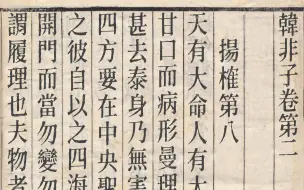 韓非子卷第二
揚權第八
天有大命人有大
甘口而病形曼理
甚去泰身乃無害
四方要在中央聖
之彼自以之四海
開門而當勿變勿
謂履理也夫物者